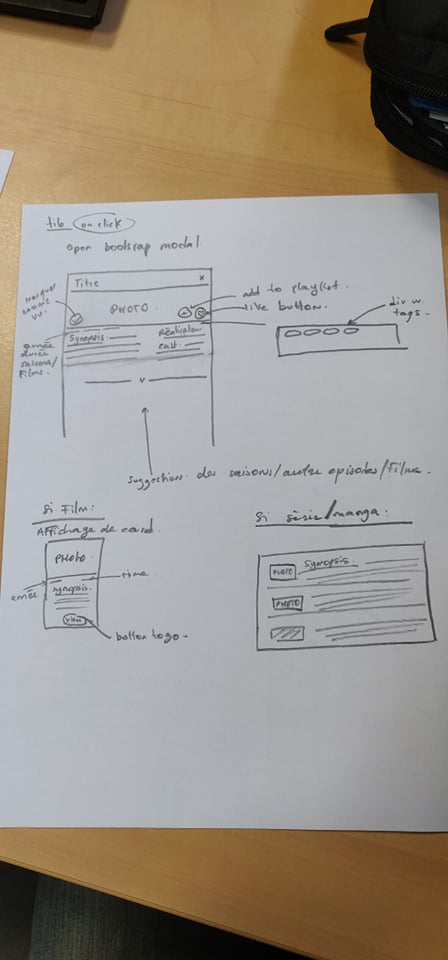 on click
Open bootsrap modal
Titre x
add to playlist.
marquer
comme
vu.
PHOTO.
like button.
div w.
tags.
année
durée
saisons/
Films.
Synopsis.
Réalisateur
cast.
v
suggestion des saisons/autre episodes/Films.
Si Film:
Affichage de card.
PHOTO.
année
time.
synopsis.
view
button to go.
Si série/manga:
PHOTO
synopsis.
PHOTO